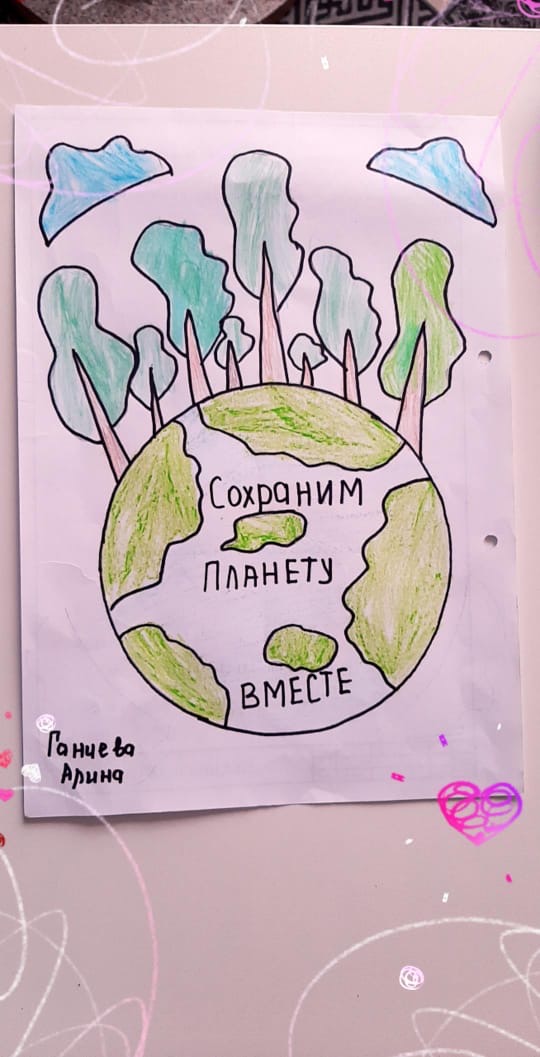 Сохраним
ПЛАНЕТУ
ВМЕСТЕ
Ганиева
Арина